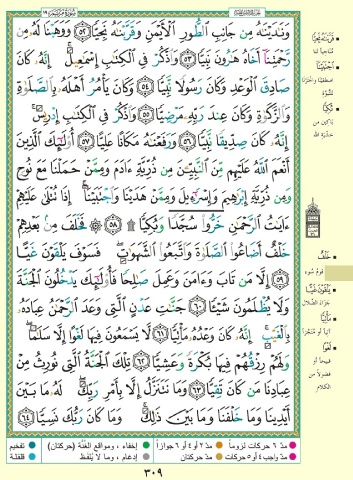 سُورَةُ مَرْيَم ١٩
وَنَٰدَيْنَٰهُ مِن جَانِبِ ٱلطُّورِ ٱلْأَيْمَنِ وَقَرَّبْنَٰهُ نَجِيًّا ٥٢ وَوَهَبْنَا لَهُۥ مِن
رَّحْمَتِنَآ أَخَاهُ هَٰرُونَ نَبِيًّا ٥٣ وَٱذْكُرْ فِى ٱلْكِتَٰبِ إِسْمَٰعِيلَ إِنَّهُۥ كَانَ
صَادِقَ ٱلْوَعْدِ وَكَانَ رَسُولًا نَّبِيًّا ٥٤ وَكَانَ يَأْمُرُ أَهْلَهُۥ بِٱلصَّلَوٰةِ
وَٱلزَّكَوٰةِ وَكَانَ عِندَ رَبِّهِۦ مَرْضِيًّا ٥٥ وَٱذْكُرْ فِى ٱلْكِتَٰبِ إِدْرِيسَ
إِنَّهُۥ كَانَ صِدِّيقًا نَّبِيًّا ٥٦ وَرَفَعْنَٰهُ مَكَانًا عَلِيًّا ٥٧ أُو۟لَٰٓئِكَ ٱلَّذِينَ
أَنْعَمَ ٱللَّهُ عَلَيْهِم مِّنَ ٱلنَّبِيِّـۧنَ مِن ذُرِّيَّةِ ءَادَمَ وَمِمَّنْ حَمَلْنَا مَعَ نُوحٍ
وَمِن ذُرِّيَّةِ إِبْرَٰهِيمَ وَإِسْرَٰٓءِيلَ وَمِمَّنْ هَدَيْنَا وَٱجْتَبَيْنَآ إِذَا تُتْلَىٰ عَلَيْهِمْ
ءَايَٰتُ ٱلرَّحْمَٰنِ خَرُّوا۟ سُجَّدًا وَبُكِيًّا ۩ ٥٨ ۞ فَخَلَفَ مِنۢ بَعْدِهِمْ
خَلْفٌ أَضَاعُوا۟ ٱلصَّلَوٰةَ وَٱتَّبَعُوا۟ ٱلشَّهَوَٰتِ فَسَوْفَ يَلْقَوْنَ غَيًّا
٥٩ إِلَّا مَن تَابَ وَءَامَنَ وَعَمِلَ صَٰلِحًا فَأُو۟لَٰٓئِكَ يَدْخُلُونَ ٱلْجَنَّةَ
وَلَا يُظْلَمُونَ شَيْـًٔا ٦٠ جَنَّٰتِ عَدْنٍ ٱلَّتِى وَعَدَ ٱلرَّحْمَٰنُ عِبَادَهُۥ
بِٱلْغَيْبِ إِنَّهُۥ كَانَ وَعْدُهُۥ مَأْتِيًّا ٦١ لَّا يَسْمَعُونَ فِيهَا لَغْوًا إِلَّا سَلَٰمًا
وَلَهُمْ رِزْقُهُمْ فِيهَا بُكْرَةً وَعَشِيًّا ٦٢ تِلْكَ ٱلْجَنَّةُ ٱلَّتِى نُورِثُ مِنْ
عِبَادِنَا مَن كَانَ تَقِيًّا ٦٣ وَمَا نَتَنَزَّلُ إِلَّا بِأَمْرِ رَبِّكَ لَهُۥ مَا بَيْنَ
أَيْدِينَا وَمَا خَلْفَنَا وَمَا بَيْنَ ذَٰلِكَ وَمَا كَانَ رَبُّكَ نَسِيًّا ٦٤
قَرَّبْنَٰهُ نَجِيًّا
مُناجياً لنا
ٱجْتَبَيْنَا
بُكِيًّا
باكين من
خشية الله
خَلْفٌ
قوم سوء
يَلْقَوْنَ غَيًّا
جزاء الضلال
مَأْتِيًّا
آتياً أو مُنجزاً
لَغْوًا
قبيحاً أو
فضولاً من
الكلام
مدّ ٦ حركات لزوماً مدّ ٢ أو ٤ أو ٦ جوازاً إخفاء، ومواقع الغُنَّة (حركتان) تفخيم
مدّ واجب ٤ أو ٥ حركات مدّ حركتان إدغام، وما لا يُلفَظ قلقلة
٣٠٩